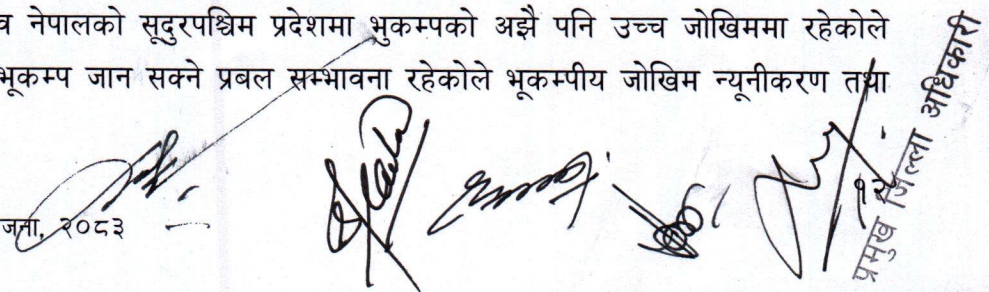 व नेपालको सूदुरपश्चिम प्रदेशमा भुकम्पको अझै पनि उच्च जोखिममा रहेकोले
भूकम्प जान सक्ने प्रबल सम्भावना रहेकोले भूकम्पीय जोखिम न्यूनीकरण तथा
जना, २०८३
१२
प्रमुख जिल्ला अधिकारी